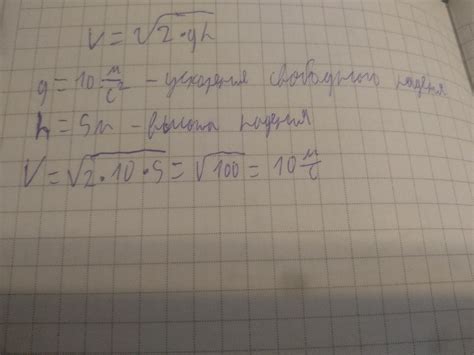 V = √2·gh
g = 10 м/с² - ускорения свободного падения
h = 5м - высота падения
V = √2·10·5 = √100 = 10 м/с